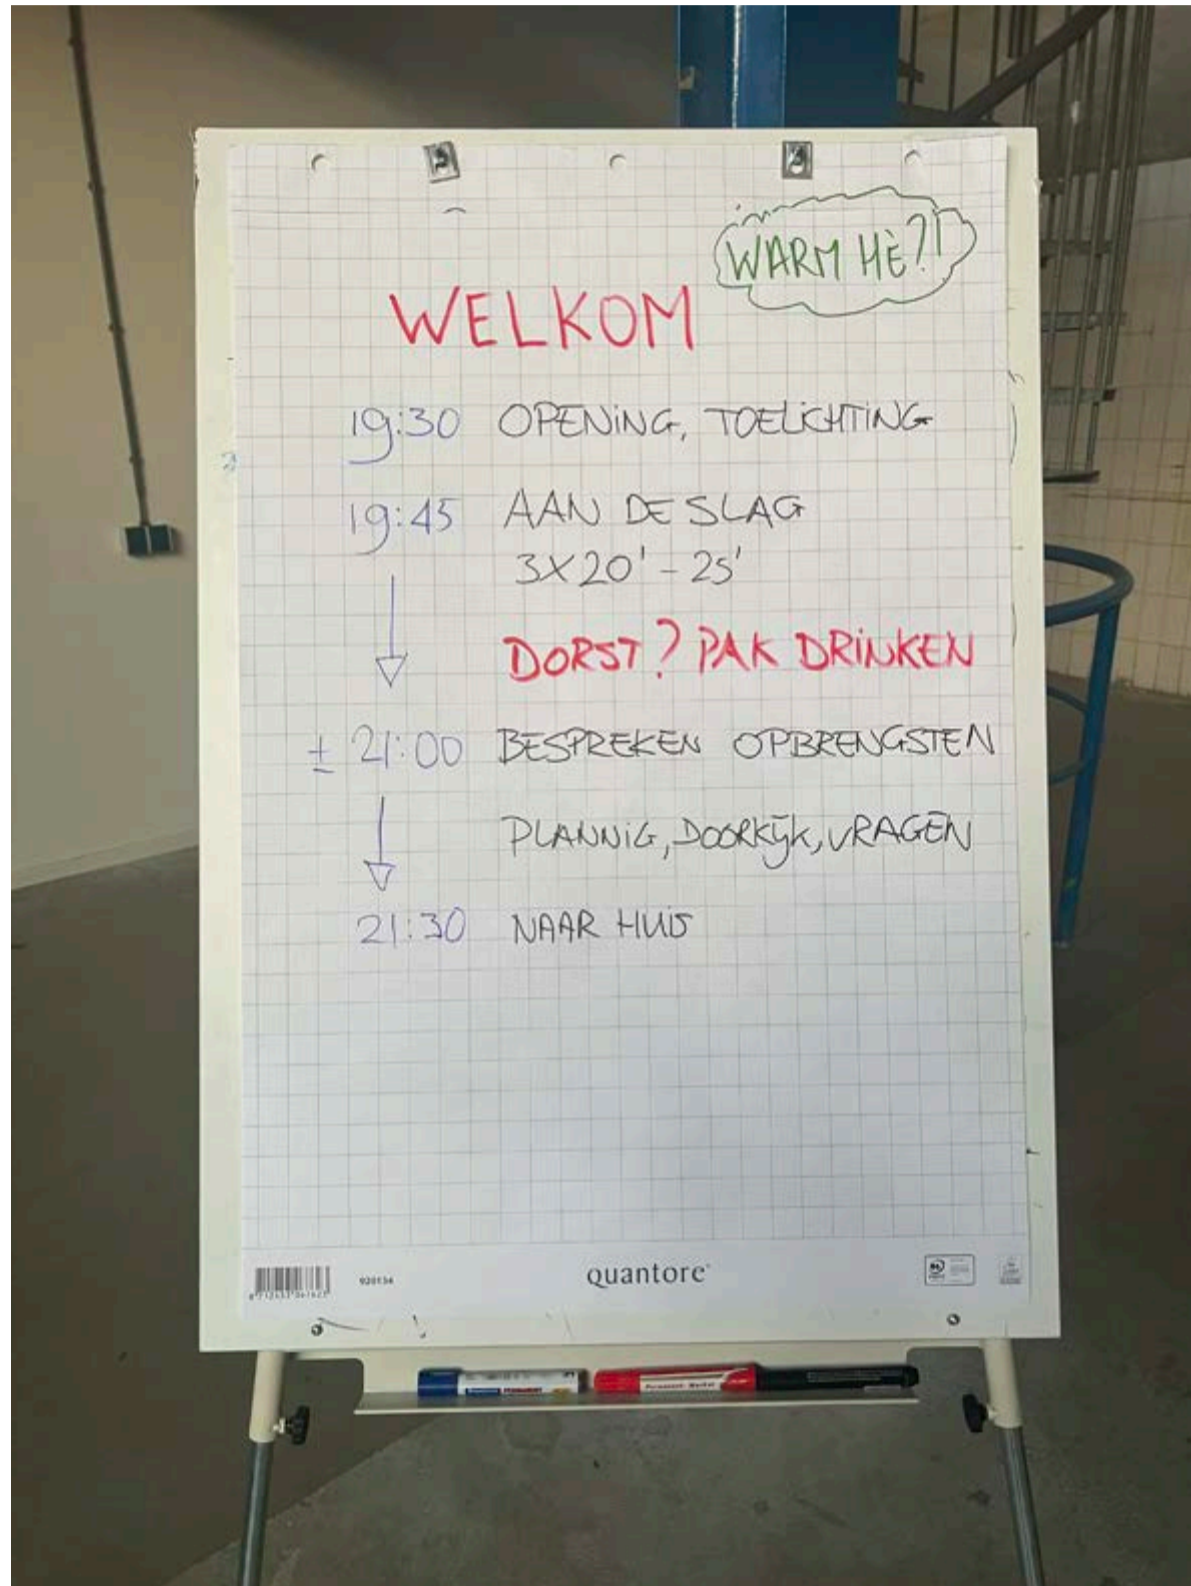 WARM HÈ?!
WELKOM
19:30 OPENING, TOELICHTING
19:45 AAN DE SLAG
3X20' - 25'
DORST? PAK DRINKEN
± 21:00 BESPREKEN OPBRENGSTEN
PLANNIG, DOORKIJK, VRAGEN
21:30 NAAR HUIS
920134
quantore
Permanent Marker